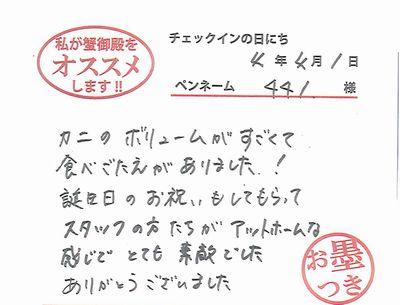 私が蟹御殿を
オススメ
します!!
チェックインの日にち
4年4月1日
ペンネーム 441. 様
カニの ボリュームが すごくて
食べごたえが ありました。!
誕生日の お祝いもしてもらって
スタッフの 方たちが アットホームな
感じで とても 素敵でした
ありがとうございました
お墨つき